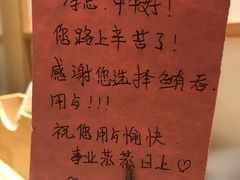 中秋好！
您路上辛苦了！
感谢您选择鳗吞.
用占!!!
祝您用占愉快.
事业蒸蒸日上♡